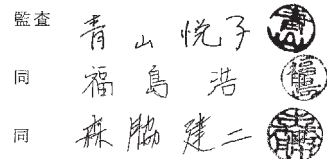 監査 青山悦子
同 福島浩
同 森脇建二